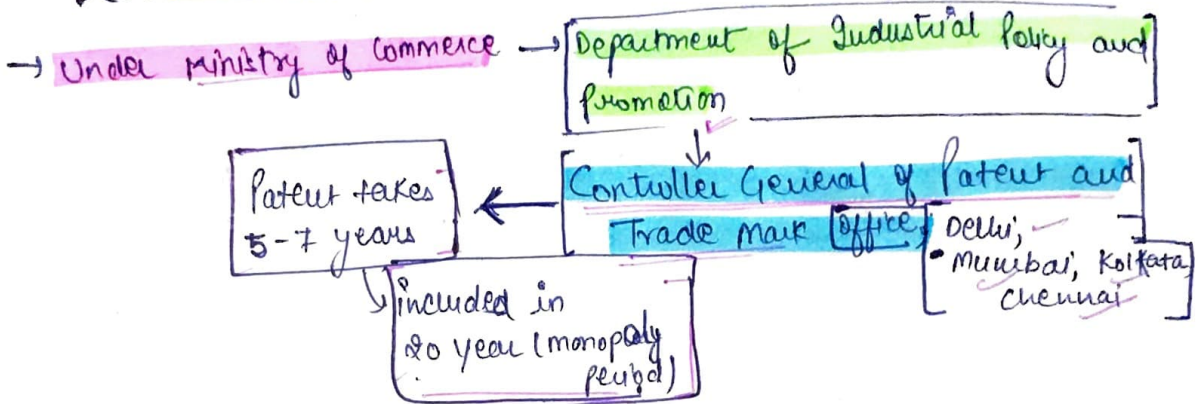 → Under ministry of Commerce → Department of Industrial Policy and
Promotion
Controller General of Patent and
Trade Mark Office, Delhi,
Mumbai, Kolkata
Chennai
Patent takes
5-7 years
included in
20 year (monopoly
period)